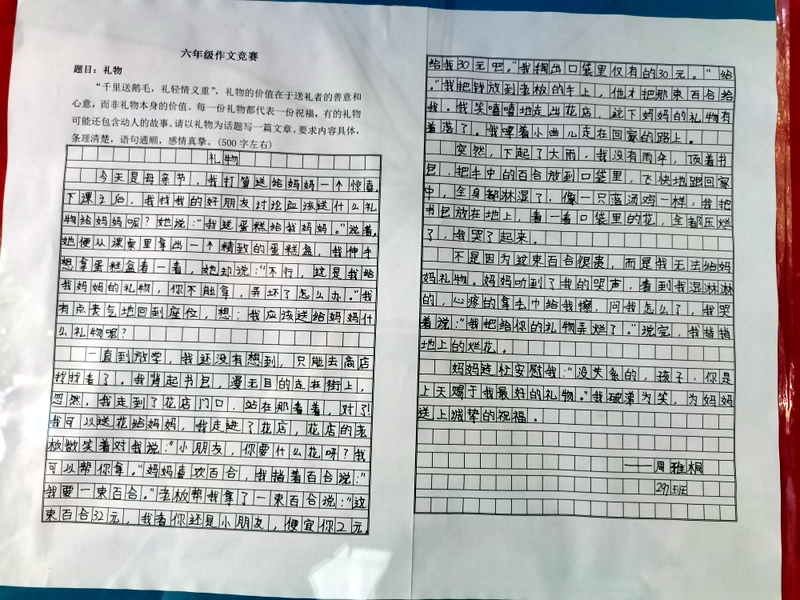 六年级作文竞赛
题目：礼物
“千里送鹅毛，礼轻情义重”。礼物的价值在于送礼者的善意和
心意，而非礼物本身的价值。每一份礼物都代表一份祝福，有的礼物
可能还包含动人的故事。请以礼物为话题写一篇文章。要求内容具体，
条理清楚，语句通顺，感情真挚。(500字左右)
礼物
今天是母亲节，我打算送给妈妈一个惊喜。
下课之后，我找我的好朋友讨论应该送什么礼
物给妈妈呢？她说：“我送蛋糕给我妈妈。”说着，
她便从课桌里拿出一个精致的蛋糕盒，我伸手
想拿蛋糕盒看一看，她却说：“不行，这是我给
我妈妈的礼物，你不能拿，弄坏了怎么办。”我
有点丧气地回到座位，想：我应该送给妈妈什
么礼物呢？
一直到放学，我还没有想到，只能去商店
找找看了。我背起书包，漫无目的走在街上，
忽然，我走到了花店门口，站在那看着，对了！
我可以送花给妈妈，我走进了花店，花店的老
板微笑着对我说：“小朋友，你要什么花呀？我
可以帮你拿。”妈妈喜欢百合，我指着百合说：“
我要一束百合。”老板帮我拿了一束百合说：“这
束百合32元，我看你还是小朋友，便宜你2元，
给我30元吧。”我掏出口袋里仅有的30元。“给
。”我把钱放到老板的手上，他才把那束百合给
我。我笑嘻嘻地走出花店，这下妈妈的礼物有
着落了。我哼着小曲儿走在回家的路上。
突然，下起了大雨，我没有雨伞，顶着书
包，把手中的百合放到口袋里，飞快地跑回家
中，全身都淋湿了，像一只落汤鸡一样，我把
书包放在地上，看一看口袋里的花，全都压烂
了，我哭了起来。
不是因为这束百合很贵，而是我无法给妈
妈礼物。妈妈听到了我的哭声，看到我湿淋淋
的，心疼的拿去巾给我擦，问我怎么了，我哭
着说：“我把给你的礼物弄烂了。”说完，我指指
地上的烂花。
妈妈连忙安慰我：“没关系的，孩子，你是
上天赐于我最好的礼物。”我破涕为笑，为妈妈
送上诚挚的祝福。
——周雅桐
29班